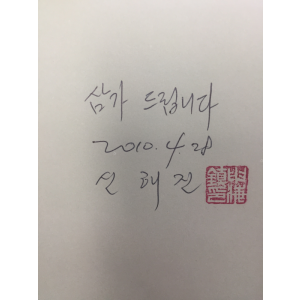 삼가 드립니다
2010. 4. 28
신 해 진